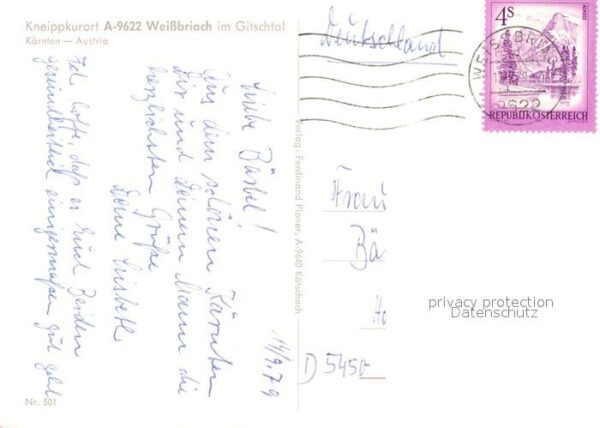 Kneippkurort A-9622 Weißbriach im Gitschtal
Kärnten — Austria
Liebe Bärbel!
Aus dem schönen Kärnten
Dir und Deinem Mann die
herzlichsten Grüße
Deine Lisbeth
14/9.79
Ich hoffe, daß es Euch Beiden
gesundheitlich einigermaßen gut geht
Nr. 501
Verlag: Ferdinand Planer, A-9640 Kötschach
Deutschland
4s
ALMSEE
REPUBLIK ÖSTERREICH
WEISSBRIACH
9622
Frau
Bä
Ho
D 5450
privacy protection
Datenschutz